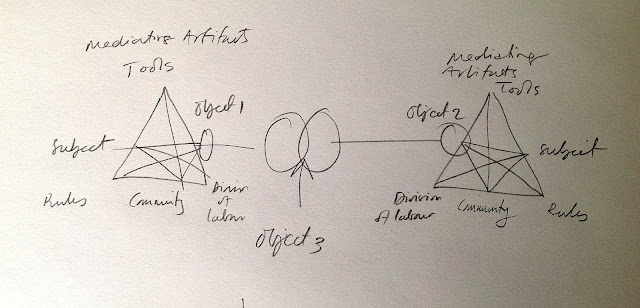 Mediating Artifacts
Tools
Object 1
Subject
Rules
Community
Division
of
labour
Object 3
Mediating
Artifacts
Tools
Object 2
Subject
Division
of labour
Community
Rules